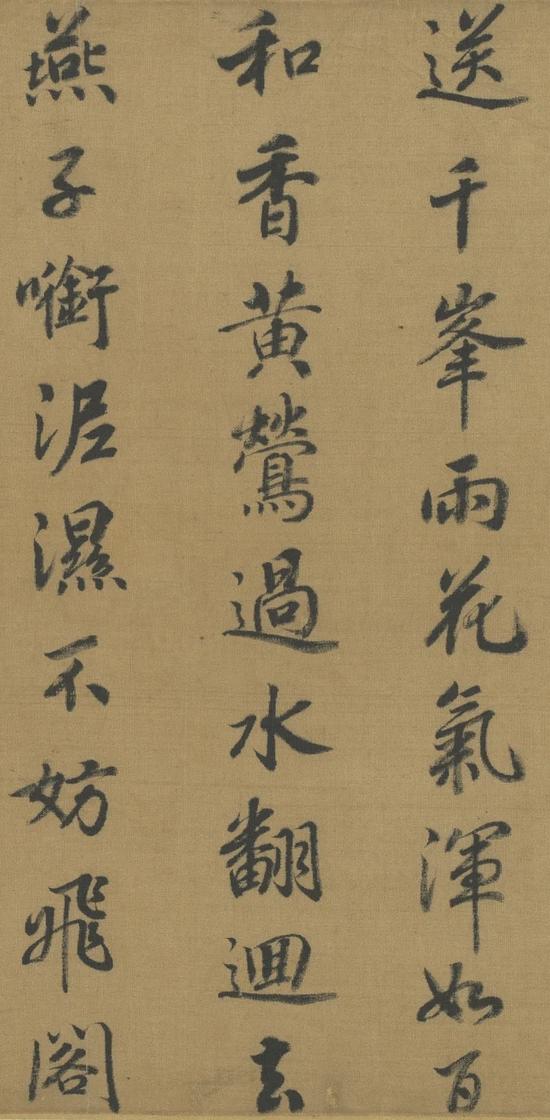 送千峯雨花氣渾如百
和香黃鶯過水翻迴去
燕子啣泥濕不妨飛閣